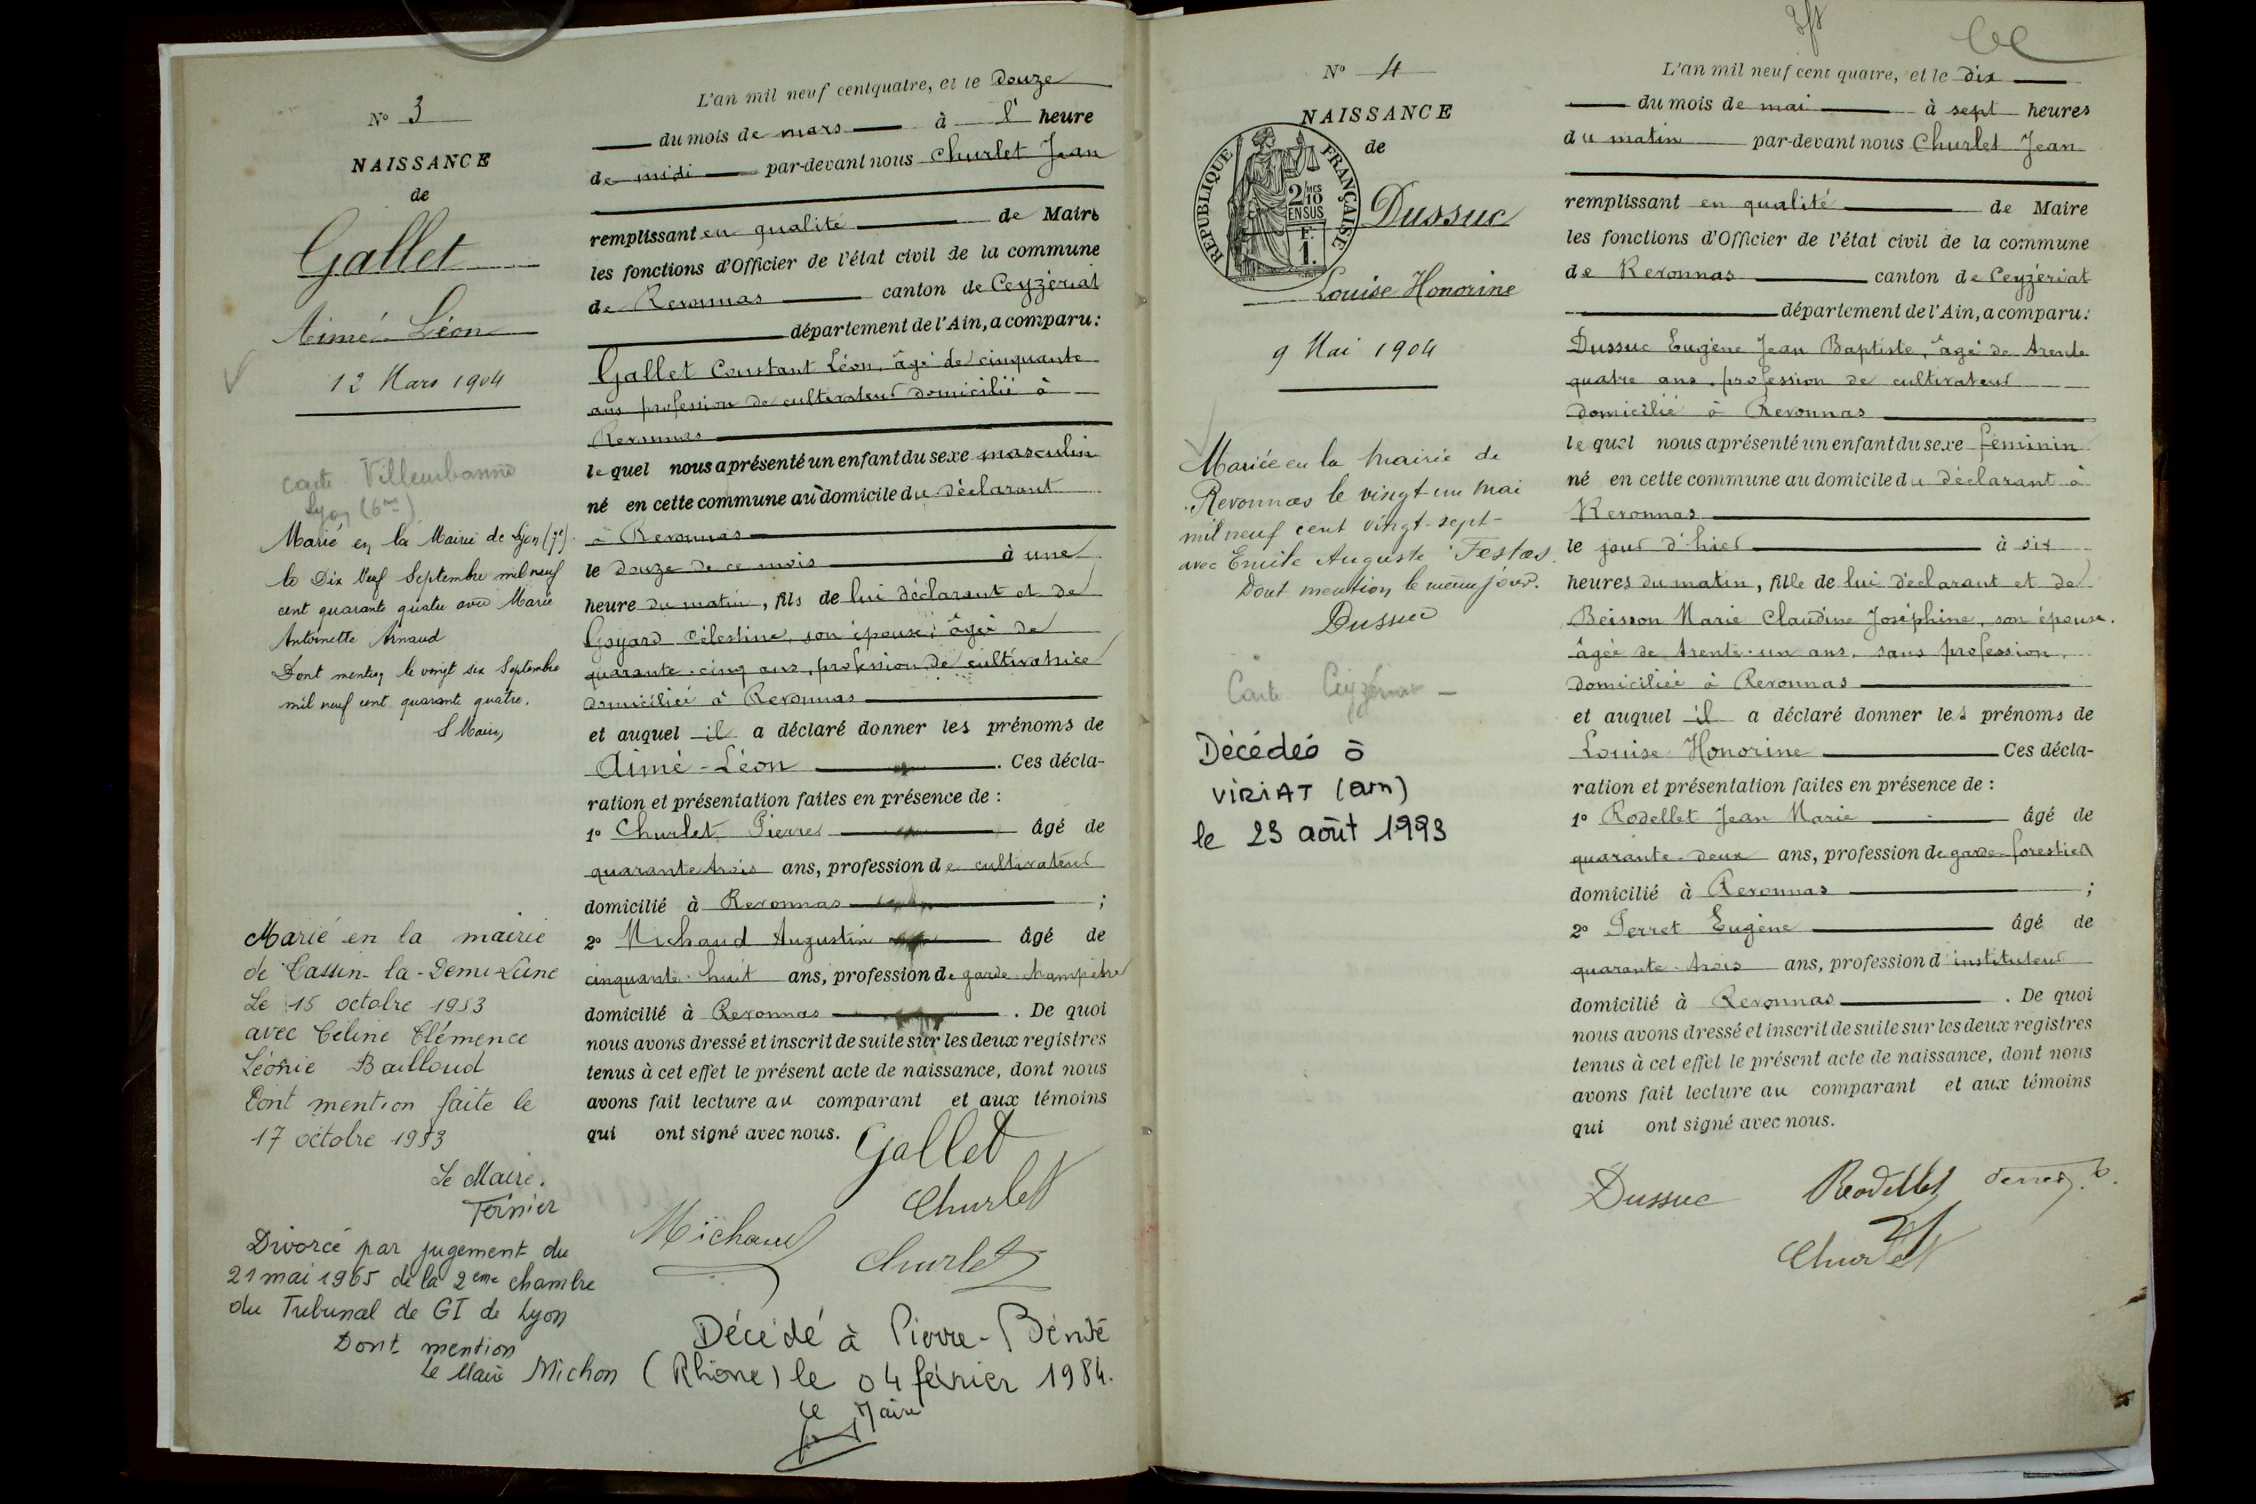 N° 3
NAISSANCE
de
Gallet
Aimé Léon
12 Mars 1904
carte Villeurbanne
Lyon (6me)
Marié en la Mairie de Lyon (7e)
le Dix Neuf Septembre mil neuf
cent quarante quatre avec Marie
Antoinette Arnaud
Dont mention le vingt six Septembre
mil neuf cent quarante quatre.
Le Maire,
Marié en la mairie
de Tassin-la-Demi-Lune
Le 15 octobre 1953
avec Céline Clémence
Léonie Bailloud
Dont mention faite le
17 octobre 1953
Le Maire.
Ternier
Divorcé par jugement du
21 mai 1965 de la 2ème chambre
du Tribunal de GI de Lyon
Dont mention
Le Maire Michon
L'an mil neuf cent quatre, et le douze
du mois de mars à l' heure
de midi par-devant nous Churlet Jean
remplissant en qualité de Maire
les fonctions d'Officier de l'état civil de la commune
de Revonnas canton de Ceyzériat
département de l'Ain, a comparu:
Gallet Constant Léon, âgé de cinquante
ans profession de cultivateur domicilié à
Revonnas
le quel nous a présenté un enfant du sexe masculin
né en cette commune au domicile du déclarant
à Revonnas
le douze de ce mois à une
heure du matin, fils de lui déclarant et de
Goyard Célestine, son épouse, âgée de
quarante-cinq ans, profession de cultivatrice
domiciliée à Revonnas
et auquel il a déclaré donner les prénoms de
Aimé-Léon. Ces décla-
ration et présentation faites en présence de :
1° Churlet Pierre âgé de
quarante trois ans, profession de cultivateur
domicilié à Revonnas ;
2° Michaud Augustin âgé de
cinquante-huit ans, profession de garde-champêtre
domicilié à Revonnas. De quoi
nous avons dressé et inscrit de suite sur les deux registres
tenus à cet effet le présent acte de naissance, dont nous
avons fait lecture au comparant et aux témoins
qui ont signé avec nous.
Gallet
Churlet
Michaud
Churlet
Décédé à Pierre-Bénite
(Rhône) le 04 février 1984.
Le Maire
N° 4
NAISSANCE
de
RÉPUBLIQUE FRANÇAISE
2/10 MES
EN SUS
F.
1.
Dussuc
Louise Honorine
9 Mai 1904
Mariée en la mairie de
Revonnas le vingt-un mai
mil neuf cent vingt-sept
avec Emile Auguste Festas.
Dont mention le même jour.
Dussuc
Carte Ceyzériat
Décédée à
VIRIAT (Ain)
le 23 août 1993
L'an mil neuf cent quatre, et le dix
du mois de mai à sept heures
du matin par-devant nous Churlet Jean
remplissant en qualité de Maire
les fonctions d'Officier de l'état civil de la commune
de Revonnas canton de Ceyzériat
département de l'Ain, a comparu:
Dussuc Eugène Jean Baptiste, âgé de trente
quatre ans, profession de cultivateur
domicilié à Revonnas
le quel nous a présenté un enfant du sexe féminin
né en cette commune au domicile du déclarant à
Revonnas
le jour d'hier à six
heures du matin, fille de lui déclarant et de
Beisson Marie Claudine Joséphine, son épouse.
âgée de trente-un ans, sans profession.
domiciliée à Revonnas
et auquel il a déclaré donner les prénoms de
Louise Honorine Ces décla-
ration et présentation faites en présence de :
1° Rodellet Jean Marie âgé de
quarante-deux ans, profession de garde-forestier
domicilié à Revonnas ;
2° Perret Eugène âgé de
quarante-trois ans, profession d'instituteur
domicilié à Revonnas. De quoi
nous avons dressé et inscrit de suite sur les deux registres
tenus à cet effet le présent acte de naissance, dont nous
avons fait lecture au comparant et aux témoins
qui ont signé avec nous.
Dussuc Rodellet Perret E.
Churlet